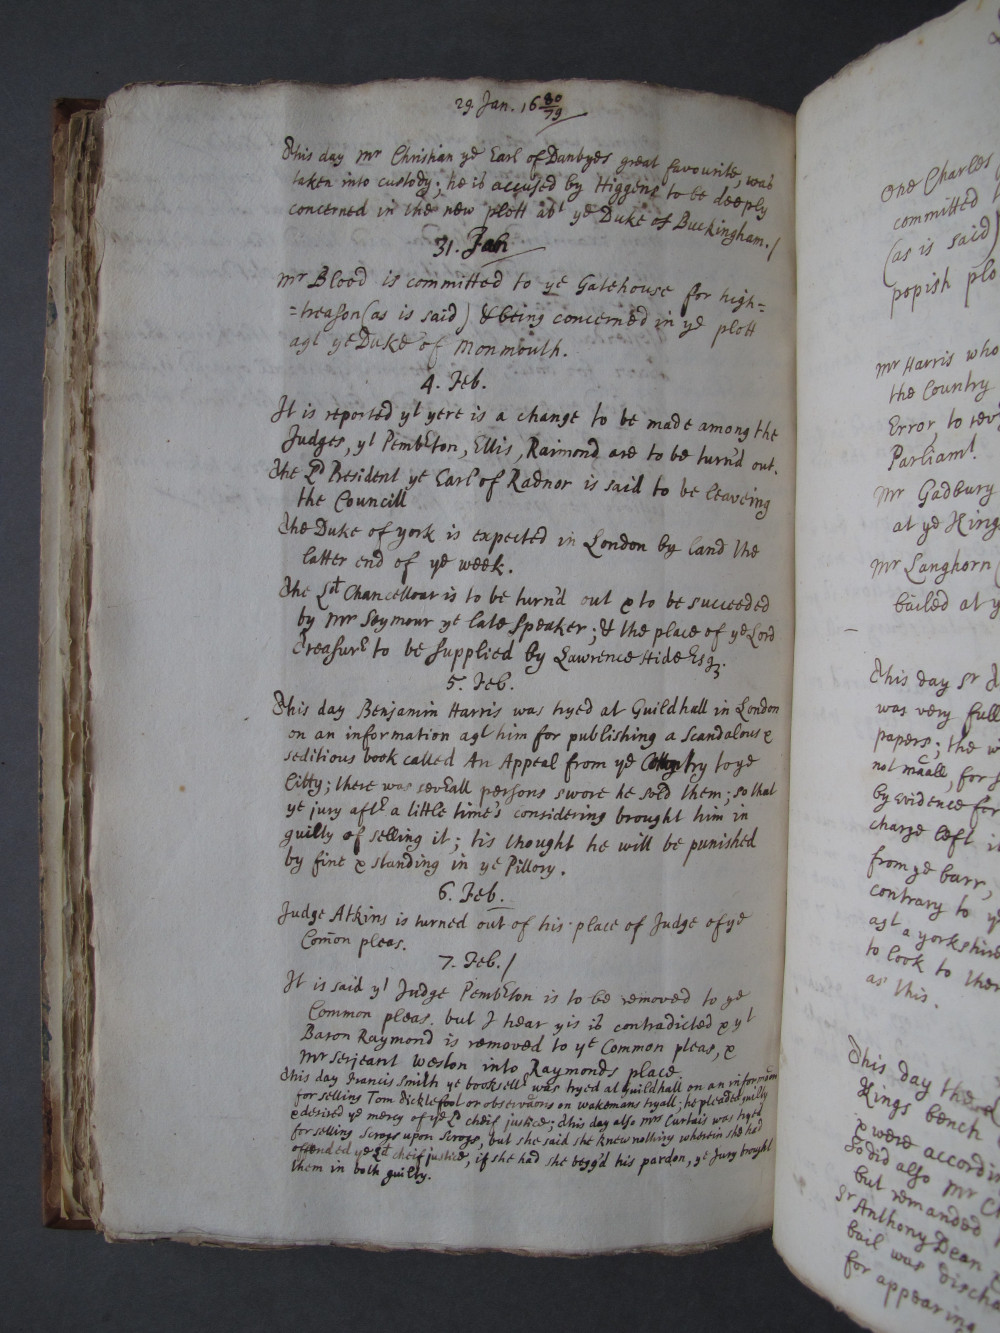 29. Jan. 16 80/79
This day Mr Christian ye Earl of Danbyes great favourite, was
taken into custody; he is accused by Higgens to be deeply
concerned in the new plott abt ye Duke of Buckingham./
31. Jan
Mr Blood is committed to ye Gatehouse for high=
=treason (as is said) & being concerned in ye plott
agt ye Duke of Monmouth.
4. Feb.
It is reported yt yere is a change to be made among the
Judges, yt Pemberton, Ellis, Raimond are to be turn'd out.
The Ld President ye Earl of Radnor is said to be leaveing
the Councill
The Duke of york is expected in London by land the
latter end of ye week.
The Ld Chancellour is to be turn'd out & to be succeeded
by Mr Seymour ye late speaker; & the place of ye Lord
Treasurer to be supplied by Lawrence Hide Esq.
5. Feb.
This day Benjamin Harris was tryed at Guildhall in London
on an information agt him for publishing a scandalous &
seditious book called An Appeal from ye Country to ye
Citty; there was severall persons swore he sold them; so that
ye jury after a little time's considering brought him in
guilty of selling it; tis thought he will be punished
by fine & standing in ye Pillory.
6. Feb.
Judge Atkins is turned out of his place of Judge of ye
Com̃on pleas.
7. Feb./
It is said yt Judge Pemberton is to be removed to ye
Common pleas. but I hear yis is contradicted & yt
Baron Raymond is removed to ye Common pleas, &
Mr serjeant Weston into Raymonds place.
This day Francis Smith ye bookseller was tryed at Guildhall on an information
for selling Tom Ticklefoot or observations on wakemans tryall; he pleaded guilty
& desired ye mercy of ye Ld cheif justice; this day also Mrs Curtais was tryed
for selling Scrogs upon Scrogs, but she said she knew nothing wherein she had
offended ye Ld cheif justice, if she had she begg'd his pardon, ye Jury brought
them in both guilty.
One Charles
committed
(as is said)
popish plo
Mr Harris who
the Country
Error to rev
Parliamt.
Mr Gadbury
at ye King
Mr Langhorn
bailed at y
This day Sr
was very full
papers; the w
not maall, for s
by evidence for
charge left i
from ye barr,
contrary to y
agt a yorkshire
to look to ther
as this.
This day the L
Kings bench
& were accordi
So did also Mr C
but remanded
Sr Anthony Dean
bail was discha
for appearing